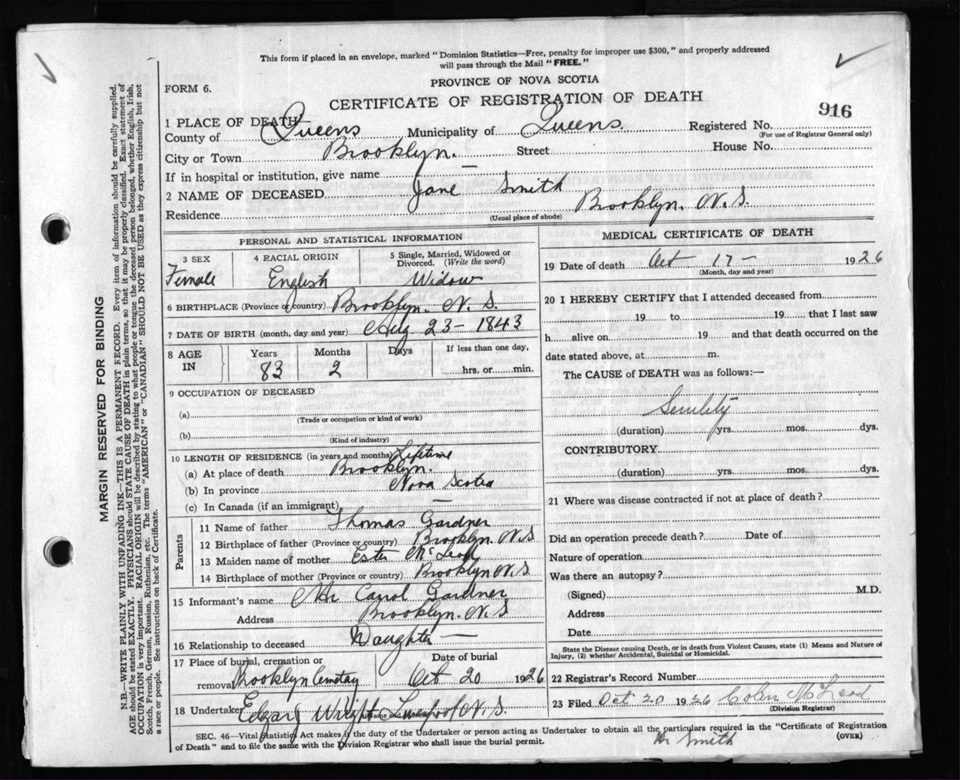 This form if placed in an envelope, marked "Dominion Statistics—Free, penalty for improper use $300," and properly addressed
will pass through the Mail "FREE."
PROVINCE OF NOVA SCOTIA
FORM 6.
CERTIFICATE OF REGISTRATION OF DEATH
916
1 PLACE OF DEATH
County of Queens Municipality of Queens. Registered No.
(For use of Registrar General only)
City or Town Brooklyn. Street — House No.
If in hospital or institution, give name
2 NAME OF DECEASED Jane Smith
Residence Brooklyn. N. S.
(Usual place of abode)
PERSONAL AND STATISTICAL INFORMATION
3 SEX 4 RACIAL ORIGIN 5 Single, Married, Widowed or
Divorced. (Write the word)
Female English Widow
6 BIRTHPLACE (Province or country) Brooklyn. N. S.
7 DATE OF BIRTH (month, day and year) Aug 23 - 1843
8 AGE IN Years Months Days If less than one day,
83 2 hrs. or min.
9 OCCUPATION OF DECEASED
(a)
(Trade or occupation or kind of work)
(b)
(Kind of industry)
10 LENGTH OF RESIDENCE (in years and months) Lifetime
(a) At place of death Brooklyn.
(b) In province Nova Scotia
(c) In Canada (if an immigrant) —
Parents
11 Name of father Thomas Gardner
12 Birthplace of father (Province or country) Brooklyn. N.S
13 Maiden name of mother Ester McLeod
14 Birthplace of mother (Province or country) Brooklyn N.S.
15 Informant's name Carrol Gardner
Address Brooklyn. N. S
16 Relationship to deceased Daughter —
17 Place of burial, cremation or Date of burial
removal Brooklyn Cemetay Oct 20 1926
18 Undertaker Edgar Wright Liverpool N. S.
MEDICAL CERTIFICATE OF DEATH
19 Date of death Oct 17 - 1926
(Month, day and year)
20 I HEREBY CERTIFY that I attended deceased from
19 to 19 that I last saw
h alive on 19 and that death occurred on the
date stated above, at m.
The CAUSE of DEATH was as follows:—
Senility
(duration) yrs. mos. dys.
CONTRIBUTORY
(duration) yrs. mos. dys.
21 Where was disease contracted if not at place of death?
Did an operation precede death? Date of
Nature of operation
Was there an autopsy?
(Signed) M.D.
Address
Date
State the Disease causing Death, or in death from Violent Causes, state (1) Means and Nature of
Injury, (2) whether Accidental, Suicidal or Homicidal.
22 Registrar's Record Number
23 Filed Oct 20 1926 Colin McLeod
(Division Registrar)
SEC. 46—Vital Statistics Act makes it the duty of the Undertaker or person acting as Undertaker to obtain all the particulars required in the "Certificate of Registration
of Death" and to file the same with the Division Registrar who shall issue the burial permit.
(OVER)
Smith
MARGIN RESERVED FOR BINDING
N.B.—WRITE PLAINLY WITH UNFADING INK—THIS IS A PERMANENT RECORD. Every item of information should be carefully supplied.
AGE should be stated EXACTLY. PHYSICIANS should STATE CAUSE OF DEATH in plain terms, so that it may be properly classified. Exact statement of
OCCUPATION is very important. RACIAL ORIGIN will be described by stating to what people or tongue the deceased person belonged, whether English, Irish,
Scotch, French, German, Russian, Ruthenian, etc. The terms "AMERICAN" or "CANADIAN" SHOULD NOT BE USED as they express citizenship but not
a race or people. See instructions on back of Certificate.